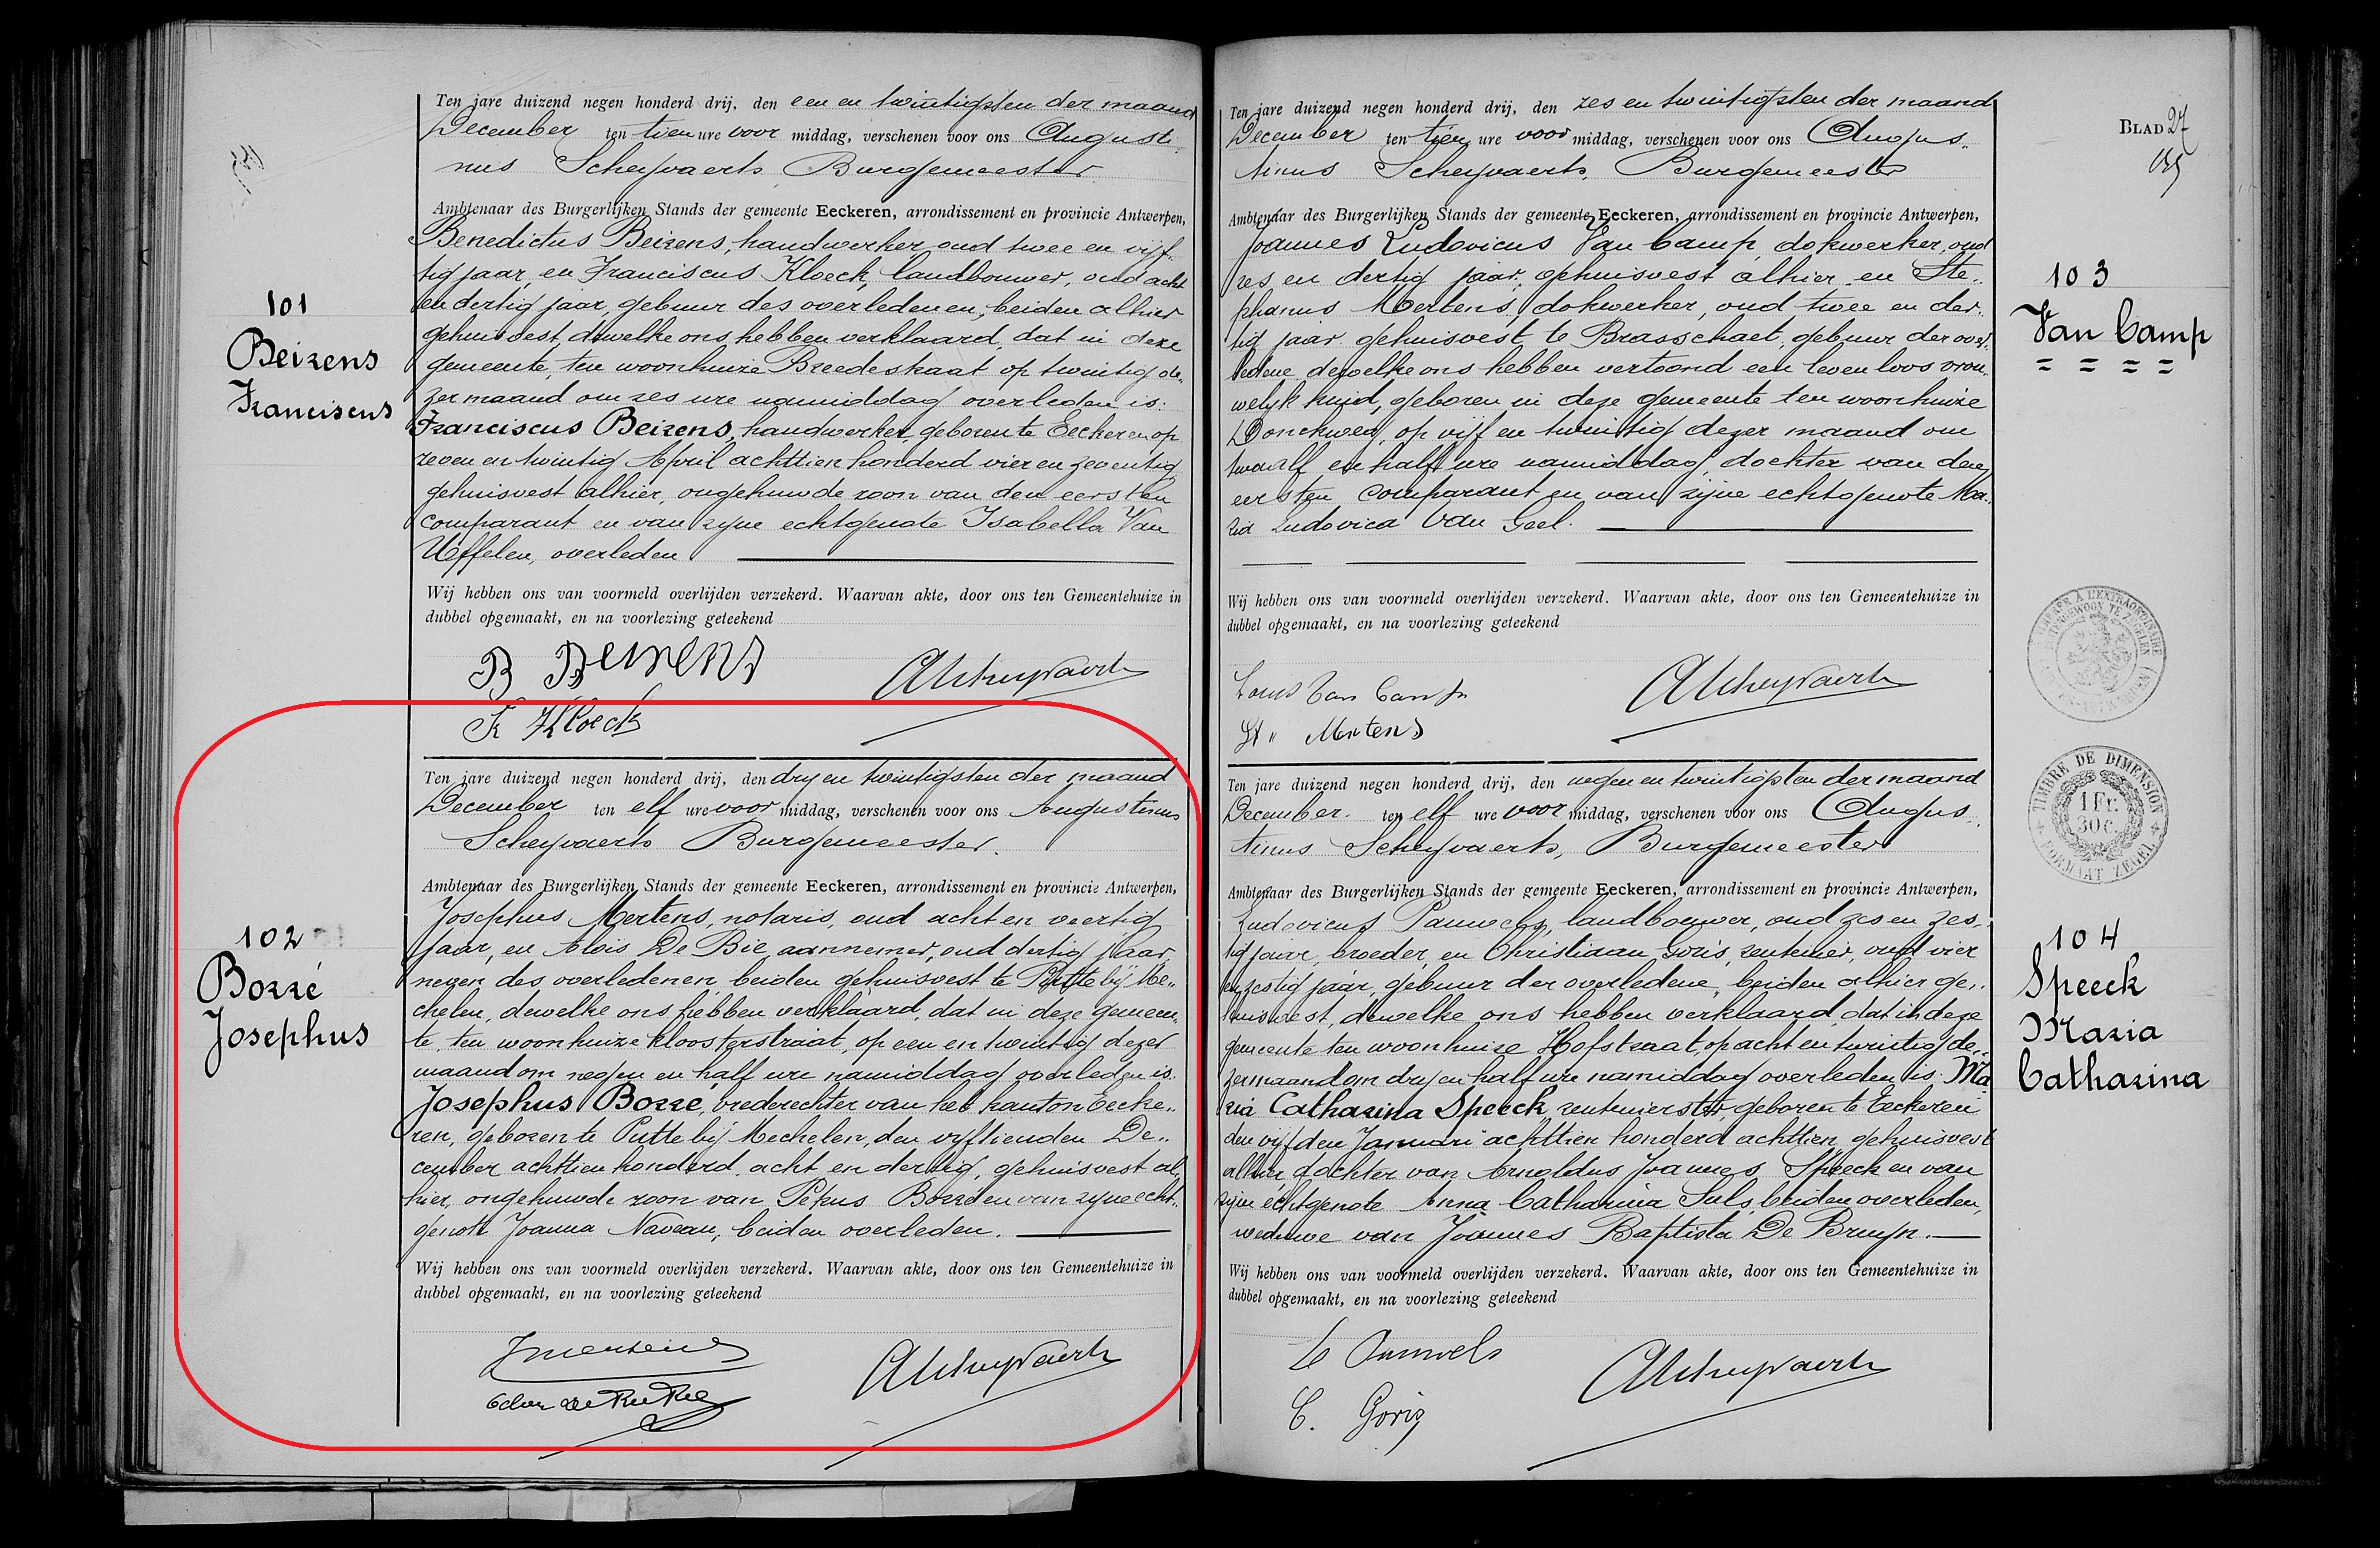 Ten jare duizend negen honderd drij, den een en twintigsten der maand
December ten tien ure voor middag, verschenen voor ons Augusti
nus Scheyvaerts, Burgemeester
Ambtenaar des Burgerlijken Stands der gemeente Eeckeren, arrondissement en provincie Antwerpen,
101
Beirens
Franciscus
Benedictus Beirens, handwerker, oud twee en vijf..
tig jaar, en Franciscus Kloeck, landbouwer, oud acht
en dertig jaar, gebuur des overledenen, beiden alhier
gehuisvest, dewelke ons hebben verklaard, dat in deze
gemeente, ten woonhuize Breedestraat op twintig de..
zer maand om zes ure namiddag overleden is:
Franciscus Beirens, handwerker, geboren te Eeckeren op
zeven en twintig April achttien honderd vier en zeventig
gehuisvest alhier, ongehuwde zoon van den eersten
comparant en van zijne echtgenote Isabella Van
Uffelen, overleden
Wij hebben ons van voormeld overlijden verzekerd. Waarvan akte, door ons ten Gemeentehuize in
dubbel opgemaakt, en na voorlezing geteekend
B Beirens AScheyvaerts
Fr Kloeck
Ten jare duizend negen honderd drij, den dry en twintigsten der maand
December ten elf ure voor middag, verschenen voor ons Augustinus
Scheyvaerts Burgemeester.
Ambtenaar des Burgerlijken Stands der gemeente Eeckeren, arrondissement en provincie Antwerpen,
102
Borré
Josephus
Josephus Mertens, notaris, oud acht en veertig
jaar, en Alois De Bie, aannemer, oud dertig jaar,
neven des overledenen, beiden gehuisvest te Putte bij Me..
chelen, dewelke ons hebben verklaard, dat in deze gemeen..
te, ten woonhuize Kloosterstraat, op een en twintig dezer
maand om negen en half ure namiddag overleden is:
Josephus Borré, vrederechter van het kanton Eecke..
ren, geboren te Putte bij Mechelen, den vyftienden De..
cember achttien honderd acht en dertig, gehuisvest al
hier, ongehuwde zoon van Petrus Borré en van zyne echt..
genote Joanna Naveau, beiden overleden.
Wij hebben ons van voormeld overlijden verzekerd. Waarvan akte, door ons ten Gemeentehuize in
dubbel opgemaakt, en na voorlezing geteekend
JMertens AScheyvaerts
BLAD 27
Ten jare duizend negen honderd drij, den zes en twintigsten der maand
December ten tien ure voor middag, verschenen voor ons Augus..
tinus Scheyvaerts, Burgemeester
Ambtenaar des Burgerlijken Stands der gemeente Eeckeren, arrondissement en provincie Antwerpen,
103
Van Camp
= = = =
Joannes Ludovicus Van Camp, dokwerker, oud
zes en dertig jaar, gehuisvest alhier en Ste..
phanus Mertens, dokwerker, oud twee en der..
tig jaar gehuisvest te Brasschaet, gebuur der over..
ledene, dewelke ons hebben vertoond een levenloos vrou..
welyk kind, geboren in deze gemeente ten woonhuize
Donckweg, op vijf en twintig dezer maand om
twaalf en half ure namiddag, dochter van den
eersten comparant en van zijne echtgenote Ma..
ria Ludovica Van Geel.
Wij hebben ons van voormeld overlijden verzekerd. Waarvan akte, door ons ten Gemeentehuize in
dubbel opgemaakt, en na voorlezing geteekend
Louis Van Camp AScheyvaerts
St. Mertens
TIMBRE DE DIMENSION
1 Fr.
30 c.
FORMAAT ZEGEL
Ten jare duizend negen honderd drij, den negen en twintigsten der maand
December. ten elf ure voor middag, verschenen voor ons Augus
tinus Scheyvaerts, Burgemeester
Ambtenaar des Burgerlijken Stands der gemeente Eeckeren, arrondissement en provincie Antwerpen,
104
Speeck
Maria
Catharina
Ludovicus Pauwels, landbouwer, oud zes en zes..
tig jaar, broeder, en Christiaan Goris, rentenier, oud vier
en zestig jaar, gebuur der overledene, beiden alhier ge..
huisvest, dewelke ons hebben verklaard, dat in deze
gemeente ten woonhuize Hofstraat, op acht en twintig de..
zer maand om dry en half ure namiddag overleden is: Ma
ria Catharina Speeck, rentenierster, geboren te Eeckeren
den vijfden Januari achttien honderd achttien, gehuisvest
alhier dochter van Arnoldus Joannes Speeck en van
zijne echtgenote Anna Catharina Sels, beiden overleden,
weduwe van Joannes Baptista De Bruyn.
Wij hebben ons van voormeld overlijden verzekerd. Waarvan akte, door ons ten Gemeentehuize in
dubbel opgemaakt, en na voorlezing geteekend
L Pauwels AScheyvaerts
C. Goris